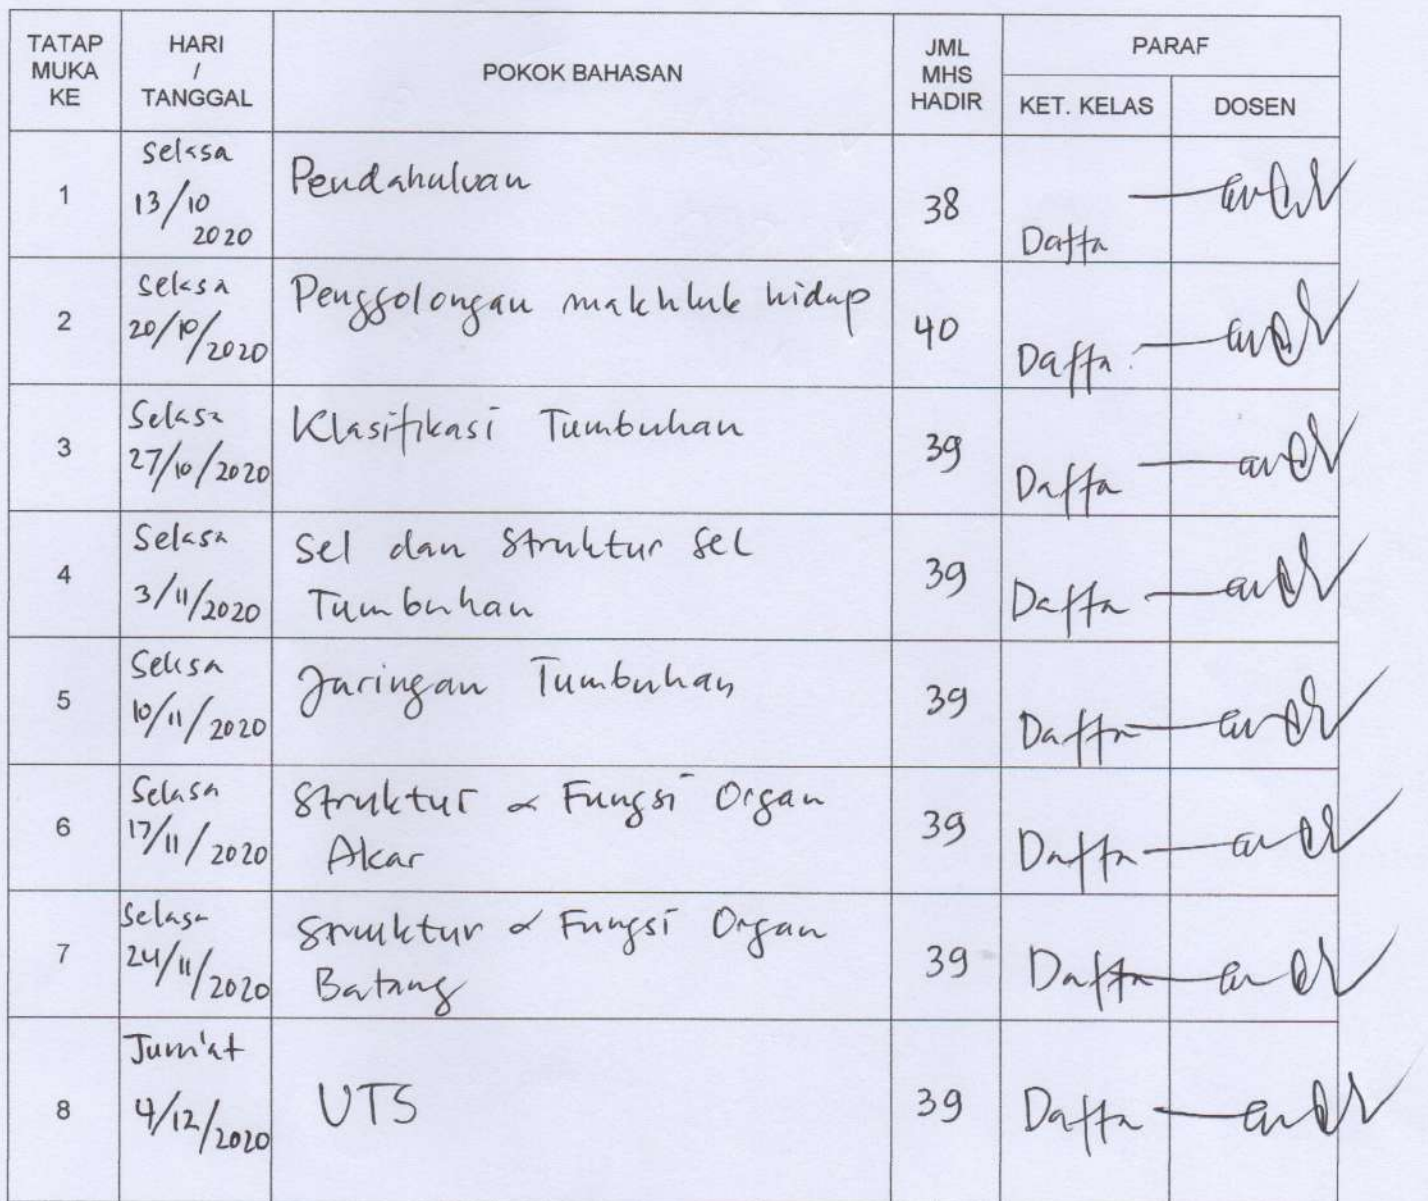 TATAP MUKA KE
HARI / TANGGAL
POKOK BAHASAN
JML MHS HADIR
PARAF
KET. KELAS
DOSEN
1
Selasa
13/10
2020
Pendahuluan
38
Daffa
2
Selasa
20/10/2020
Penggolongan makhluk hidup
40
Daffa
3
Selasa
27/10/2020
Klasifikasi Tumbuhan
39
Daffa
4
Selasa
3/11/2020
Sel dan Struktur Sel
Tumbuhan
39
Daffa
5
Selasa
10/11/2020
Jaringan Tumbuhan
39
Daffa
6
Selasa
17/11/2020
Struktur & Fungsi Organ
Akar
39
Daffa
7
Selasa
24/11/2020
Struktur & Fungsi Organ
Batang
39
Daffa
8
Jum'at
4/12/2020
UTS
39
Daffa